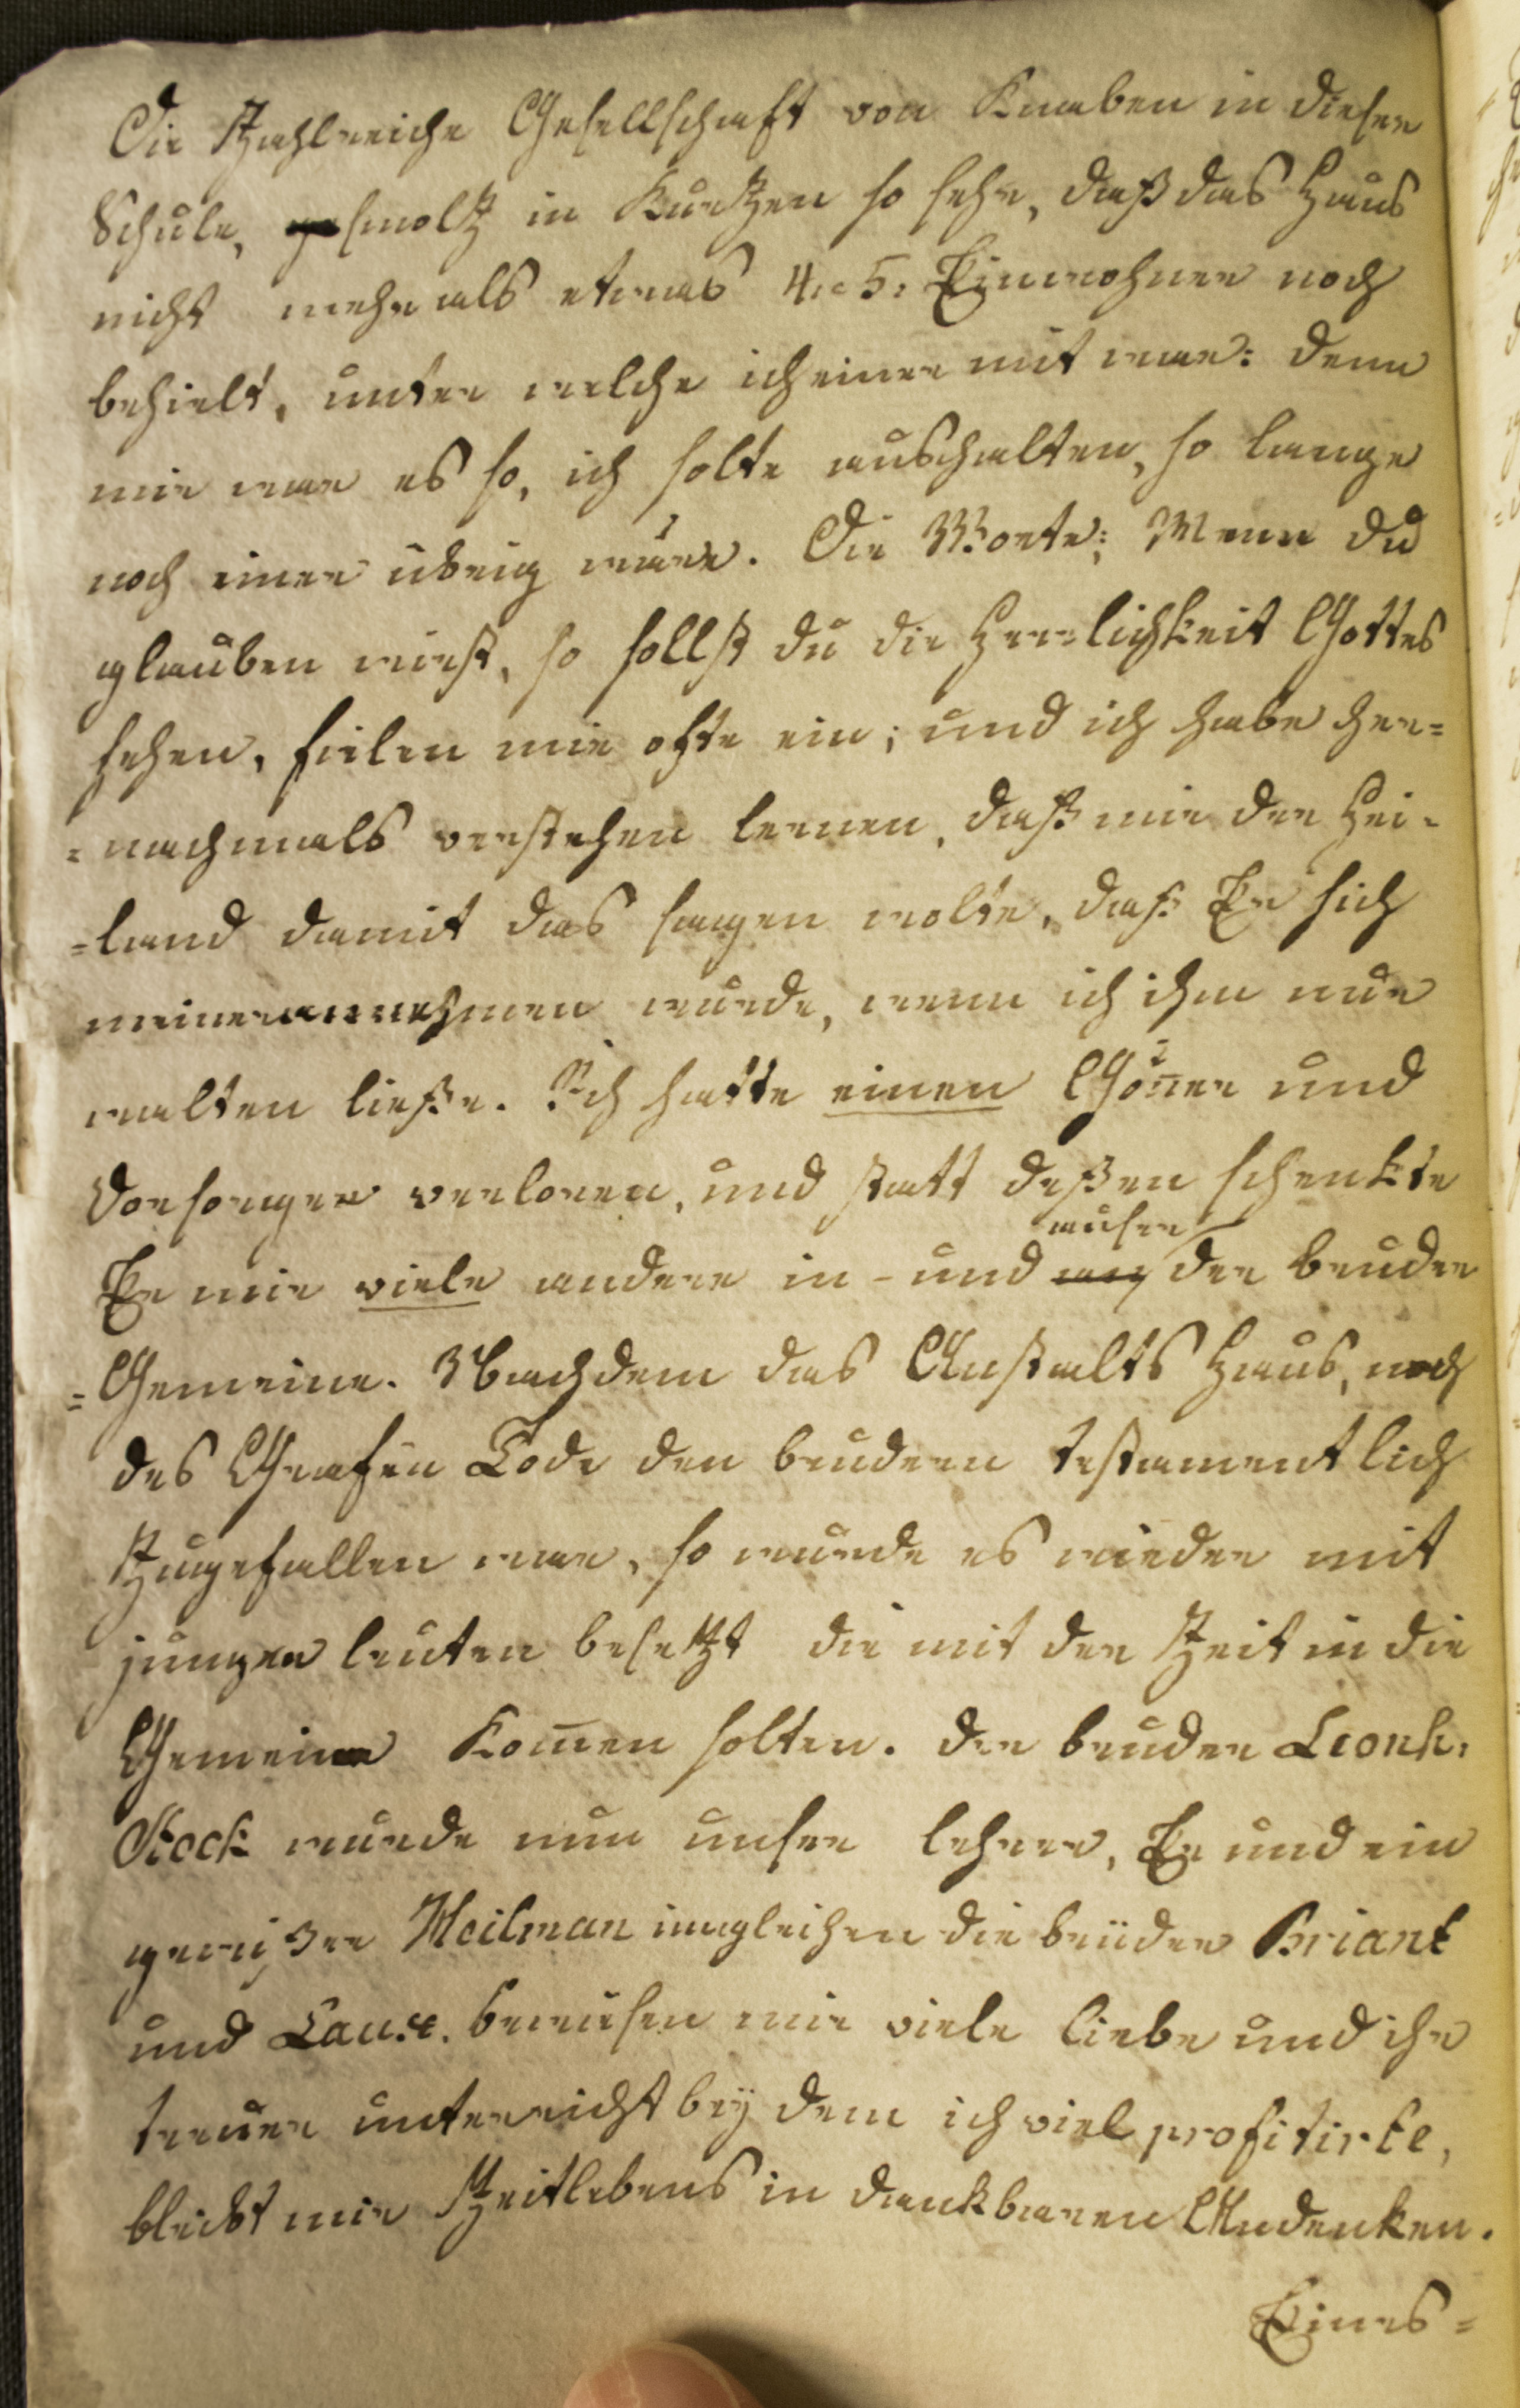 Die Zahlreiche Gesellschaft von Knaben in dieser
Schule, smoltz in Kurtzen so sehr, daß das Haus
nicht mehr als etwas 4. 5. Einwohner noch
behielt, unter welche ich einer mit war: denn
mir war es so, ich solte aushalten, so lange
noch einer übrig wäre. Die Worte: Wenn du
glauben wirst, so sollst du die Herrlichkeit Gottes
sehen, fielen mir ofte ein; und ich habe her=
=nachmals verstehen lernen, daß mir der Hei=
=land damit das sagen wolte, daß Er sich
meiner annehmen wurde, wenn ich ihm nur
walten ließe. Ich hatte einen Gön̄er und
Vorsorger verloren, und statt deßen schenkte
Er mir viele andere in- und auser der bruder
=Gemeine. Nachdem das Anstalts Haus, nach
des Grafen Tode den brudern testamentlich
Zugefallen war, so wurde es wieder mit
jungen leuten besetzt die mit der Zeit in die
Gemeine Kom̄en solten. der bruder Leonh.
Stock wurde nun unser lehrer, Er und ein
gewißer Meilman imgleichen die brüder Briant
und bewiesen mir viele liebe und ihr
treuer unterricht bey dem ich viel profitirte,
bleibt mir Zeitlebens in dankbaren Andenken.
Eines=